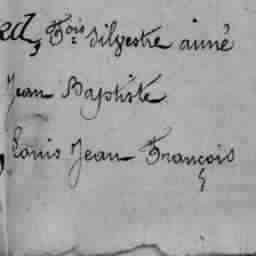 Fois Silvestre ainné
Jean Baptiste
Louis Jean François